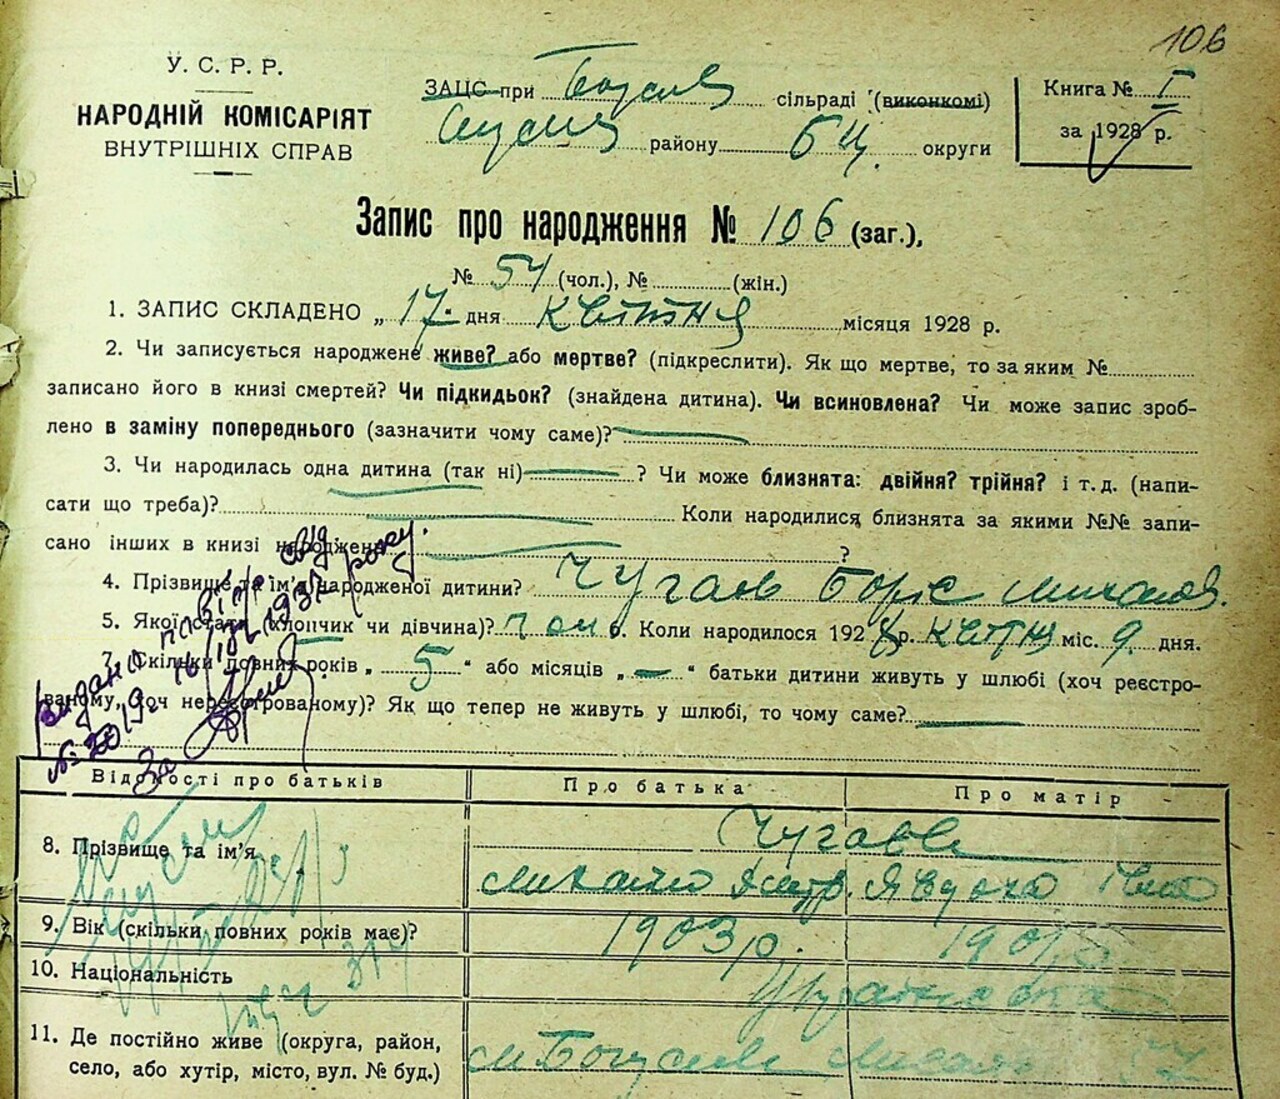 106
У. С. Р. Р.
НАРОДНІЙ КОМІСАРІЯТ
ВНУТРІШНІХ СПРАВ
ЗАЦС при сільраді (виконкомі)
району БЦ. округи
Книга № I
за 1928 р.
Запис про народження № 106 (заг.),
№ 54 (чол.), № (жін.)
1. ЗАПИС СКЛАДЕНО „17" дня квітня місяця 1928 р.
2. Чи записується народжене живе? або мертве? (підкреслити). Як що мертве, то за яким №
записано його в книзі смертей? Чи підкидьок? (знайдена дитина). Чи всиновлена? Чи може запис зроб-
лено в заміну попереднього (зазначити чому саме)?
3. Чи народилась одна дитина (так ні) ? Чи може близнята: двійня? трійня? і т. д. (напи-
сати що треба)? Коли народилися близнята за якими №№ запи-
сано інших в книзі народжень ?
4. Прізвище та ім'я народженої дитини? Чугаїв Боріс Михайлов.
5. Якої статі (хлопчик чи дівчина)? чол. 6. Коли народилося 1928 р. квітня міс. 9 дня.
7. Скільки повних років „5" або місяців „—" батьки дитини живуть у шлюбі (хоч реєстро-
ваному, хоч нереєстрованому)? Як що тепер не живуть у шлюбі, то чому саме?
видано
року
За
Відомості про батьків Про батька Про матір
8. Прізвище та ім'я
Михайло Явдоха
9. Вік (скільки повних років має)? 1903 р.
10. Національність Українська
11. Де постійно живе (округа, район,
село, або хутір, місто, вул. № буд.) м. Богуслав 57